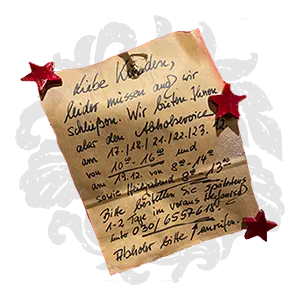 Liebe Kunden,
leider müssen auch wir
schließen. Wir bieten Ihnen
aber den Abholservice
am 17./18./21./22./23.12
von 10⁰⁰-16⁰⁰ und
am 19.12. von 8⁰⁰-14⁰⁰
sowie Heiligabend 8⁰⁰-13⁰⁰
Bitte bestellen Sie spätestens
1-2 Tage im voraus
unter 030/6557618.
Abholer bitte